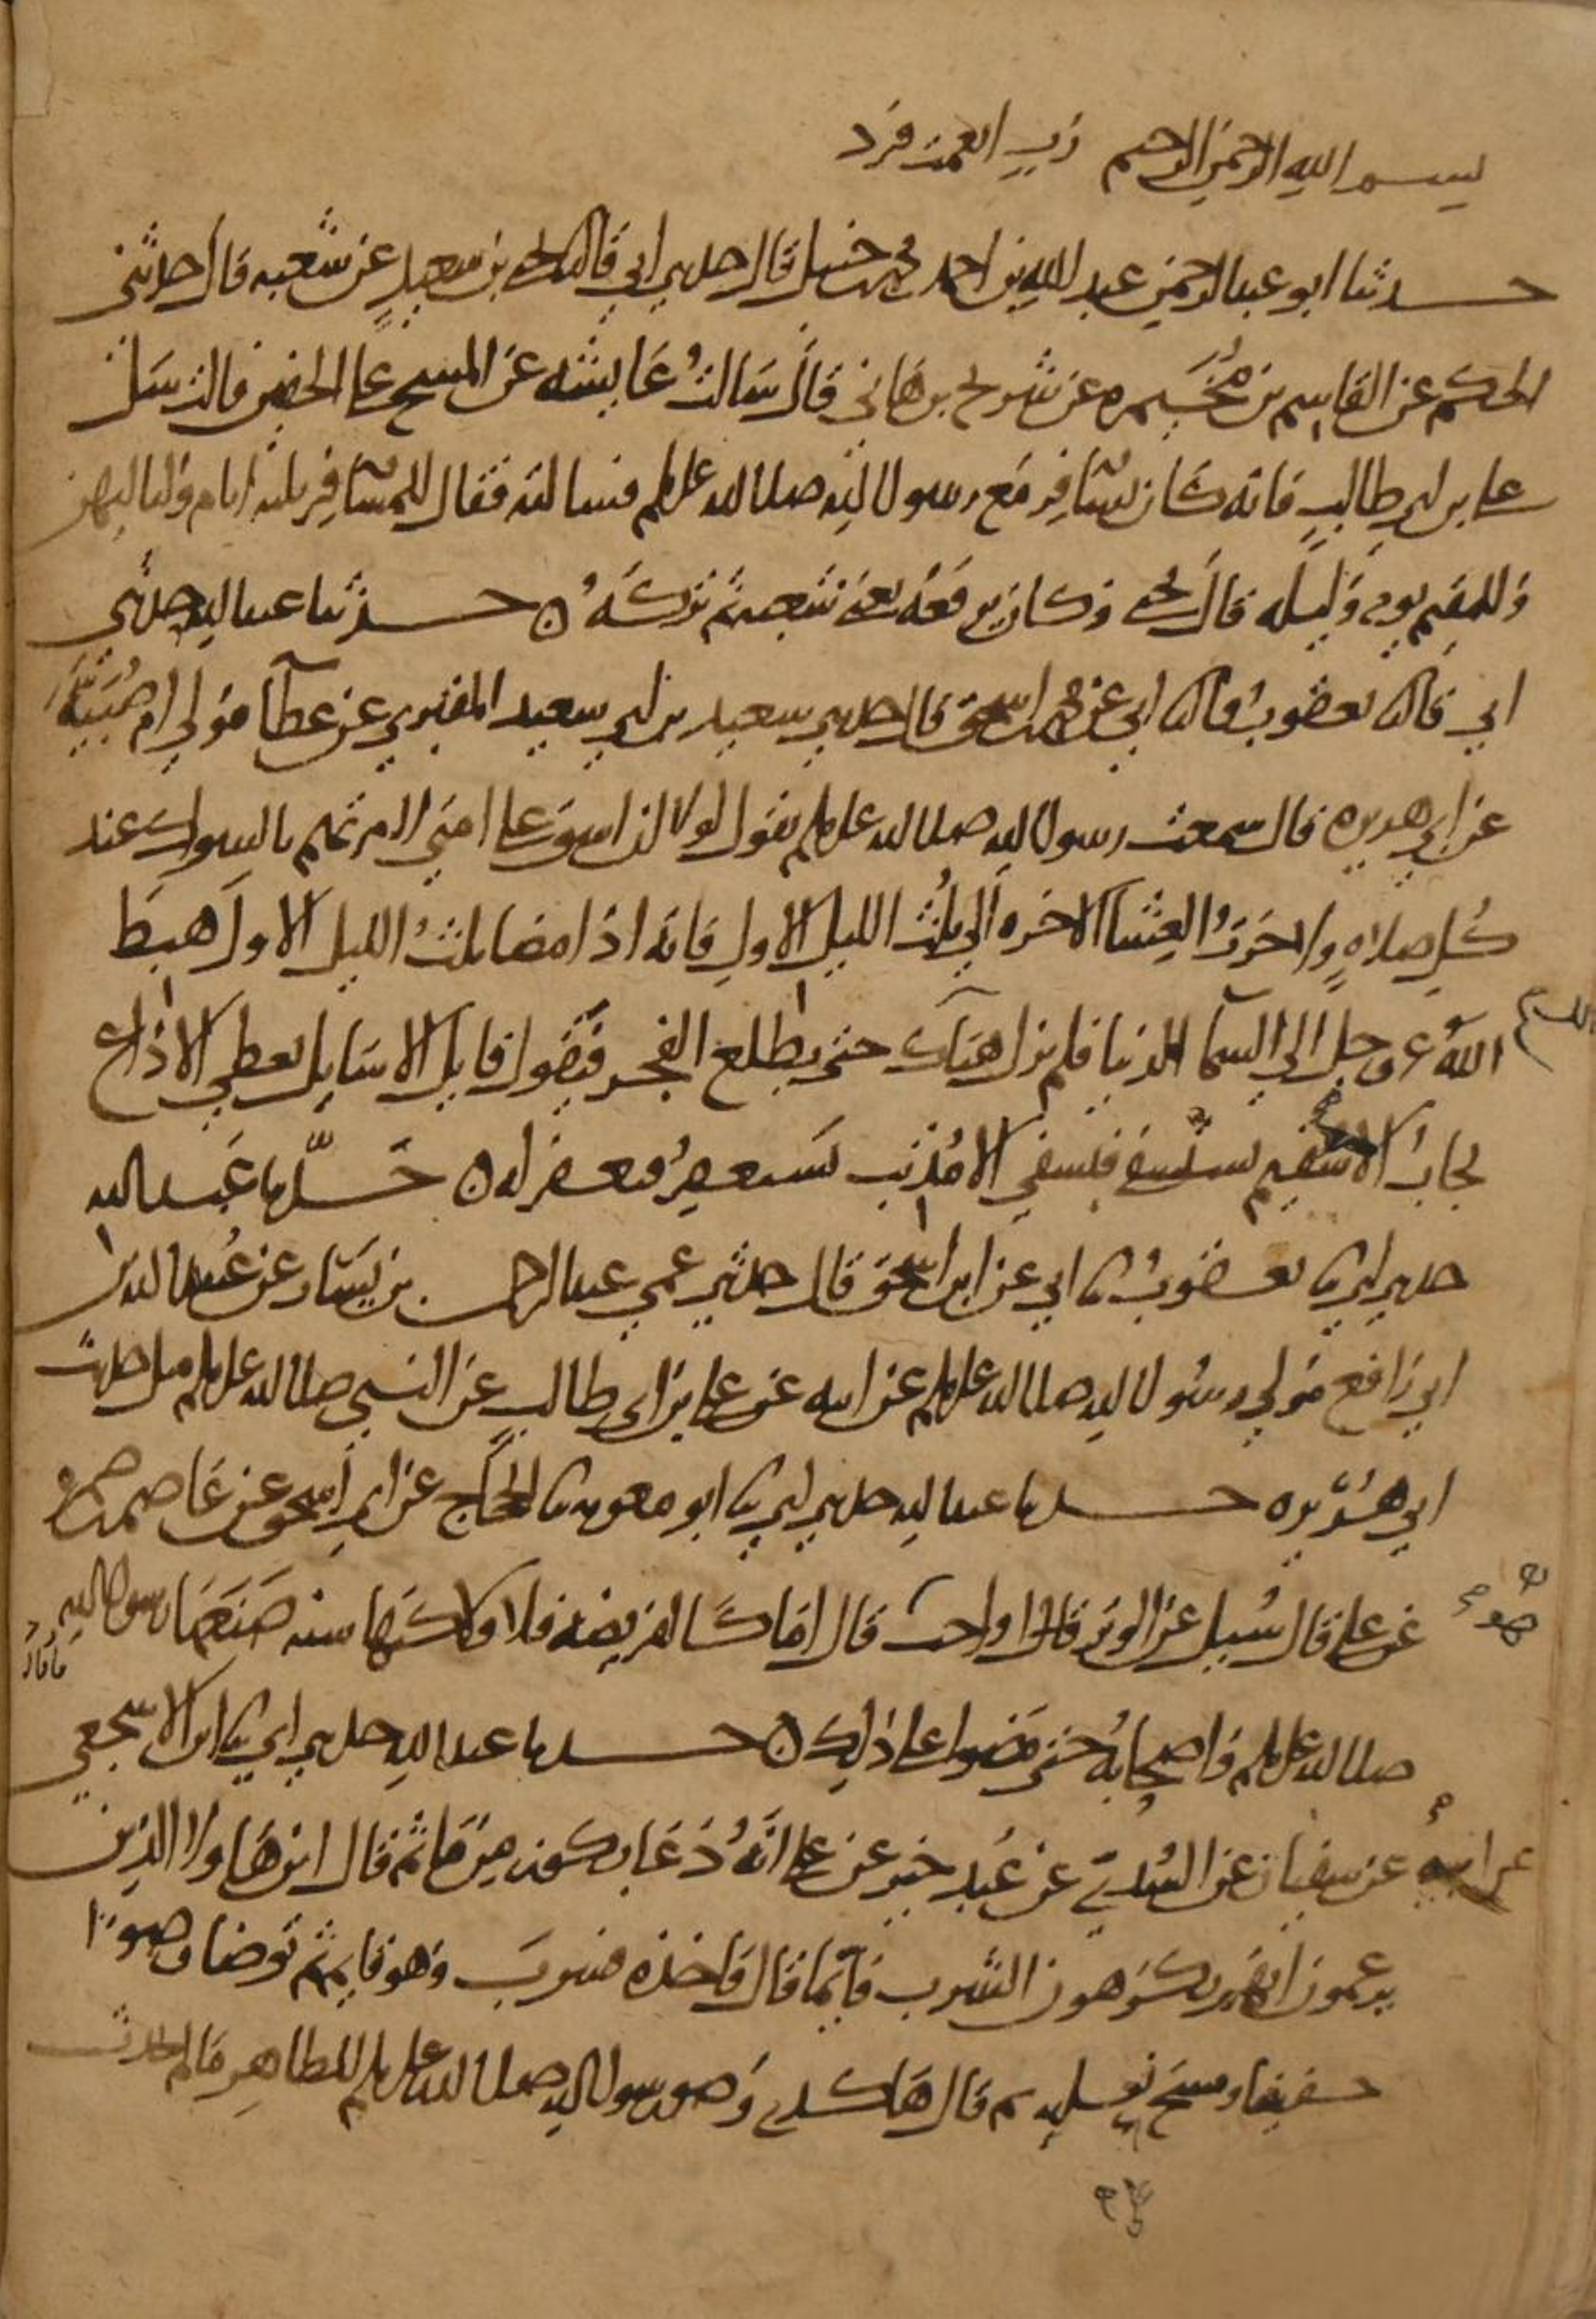 بسم الله الرحمن الرحيم رب انعمت فزد
حدثنا ابو عبد الرحمن عبد الله بن احمد بن محمد بن حنبل قال حدثني ابي قال ثنا يحيى بن سعيد عن شعبه قال حدثني
الحكم عن القاسم بن مخيمره عن شريح بن هاني قال سالت عايشه عن المسح على الخفين قالت سل
علي بن ابي طالب فانه كان يسافر مع رسول الله صلى الله عليه وسلم فسالته فقال للمسافر ثلثه ايام ولياليهن
وللمقيم يوم وليله قال يحيى وكان يرفعه يعني شعبه ثم تركه حدثنا عبد الله حدثني
ابي قال ثنا يعقوب قال ثنا ابي عن محمد بن اسحق قال حدثني سعيد بن ابي سعيد المقبري عن عطآ مولى ام صبيه
عن ابي هريره قال سمعت رسول الله صلى الله عليه وسلم يقول لولا ان اشق على امتي لامرتهم بالسواك عند
كل صلاه ولاخرت العشا الاخره الى ثلث الليل الاول فانه اذا مضا ثلث الليل الاول هبط
الله عز وجل الى السمآ الدنيا فلم يزل هناك حتى يطلع الفجر فيقول قايل الا سايل يعطى الا داع
يجاب الا سقيم يستشفي فيشفى الا مذنب يستغفر فيغفر له حدثنا عبد الله
حدثني ابي ثنا يعقوب ثنا ابي عن ابن اسحق قال حدثني عمي عبد الرحمن بن يسار عن عبيد الله بن
ابي رافع مولى رسول الله صلى الله عليه وسلم عن ابيه عن علي بن ابي طالب عن النبي صلى الله عليه وسلم مثل حديث
ابي هريره حدثنا عبد الله حدثني ابي ثنا ابو معويه ثنا الحجاج عن ابي اسحق عن عاصم بن ضمره
عن علي قال سيل عن الوتر قال اواجب قال اما كالفريضه فلا ولاكنها سنه صنعها رسول الله
صلى الله عليه وسلم واصحابه حتى مضوا على ذلك حدثنا عبد الله حدثني ابي ثنا ابن الاشجعي
عن ابيه عن سفيان عن السدي عن عبد خير عن علي انه دعا بكوز من ما ثم قال اين هاولا الذين
يزعمون انهم يكرهون الشرب قايما قال فاخذه فشرب وهو قايم ثم توضا وضوءا
خفيفا ومسح نعليه ثم قال هاكذى وضو رسول الله صلى الله عليه وسلم للطاهر ما لم يحدث